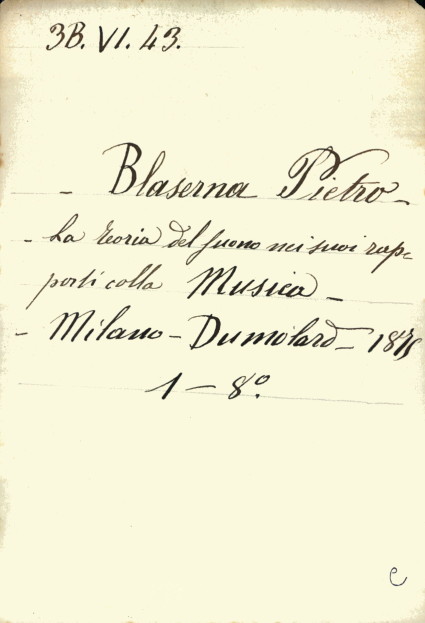 3B. VI. 43.
- Blaserna Pietro -
- La teoria del suono nei suoi rap-
porti colla Musica -
- Milano - Dumolard - 1875
1 - 8º.
C